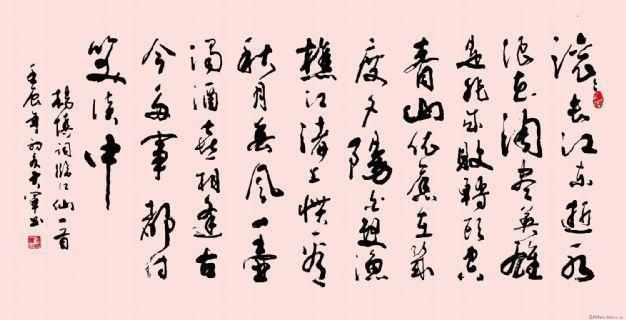 滚々长江东逝水
浪花淘尽英雄
是非成败轉頭空
青山依舊在几
度夕陽白发漁
樵江渚上惯看
秋月春风一壶
濁酒喜相逢古
今多事都付
笑谈中
楊慎词临江仙一首
壬辰年初夏大军书